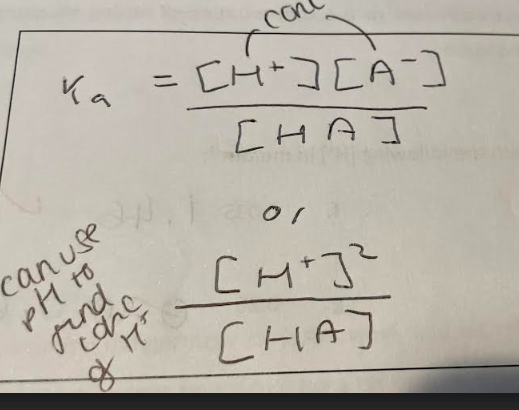 conc
Ka = [H+][A-]
[HA]
or
[H+]²
[HA]
can use
pH to
find
conc
of H+